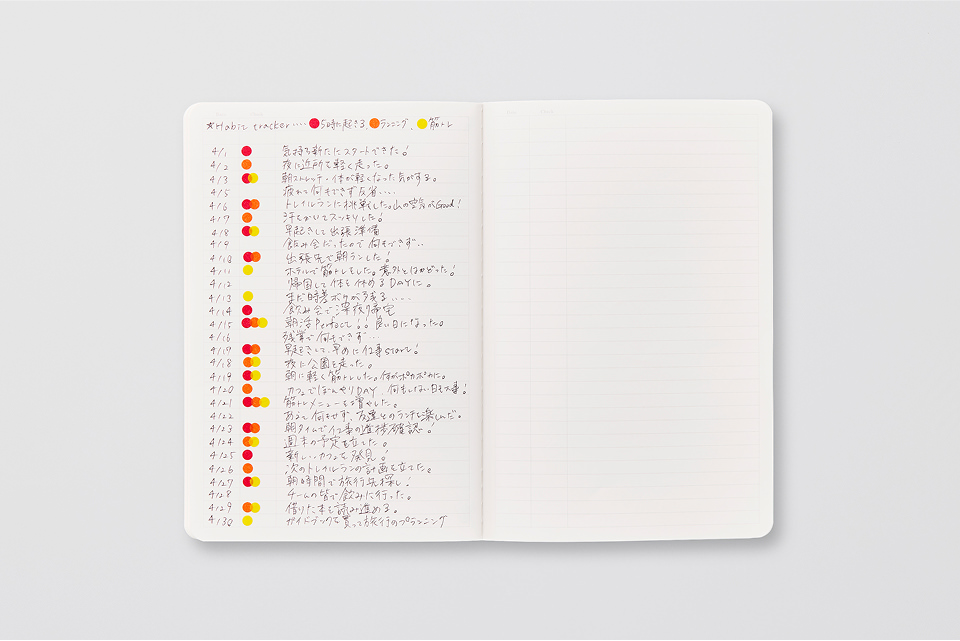 ☆Habit tracker‥‥ ●5時に起きる、●ランニング、●筋トレ
4/1 気持ち新たにスタートできた!
4/2 夜に近所を軽く走った。
4/3 朝ストレッチ、体が軽くなった気がする。
4/5 疲れて何もできず反省‥‥
4/6 トレイルランに挑戦した。山の空気がGood!
4/7 汗をかいてスッキリした!
4/8 早起きして出張準備
4/9 飲み会だったので何もできず‥
4/10 出張先で朝ランした!
4/11 ホテルで筋トレをした。意外とはかどった!
4/12 帰国して体を休めるDAYに。
4/13 まだ時差ボケが残る‥‥
4/14 飲み会で深夜帰宅
4/15 朝活Perfect!。良い日になった。
4/16 残業で何もできず‥‥
4/17 早起きして、早めに仕事start!
4/18 夜に公園を走った。
4/19 朝に軽く筋トレした。体がポカポカに。
4/20 カフェでぼんやりDAY 何もしない日も大事!
4/21 筋トレメニューを増やした。
4/22 あえて何もせず、友達とのランチを楽しんだ。
4/23 朝タイムで仕事の進捗確認!
4/24 週末の予定を立てた。
4/25 新しいカフェを発見!
4/26 次のトレイルランの計画を立てた。
4/27 朝時間で旅行先探し!
4/28 チームの皆で飲みに行った。
4/29 借りた本を読み進める。
4/30 ガイドブックを買って旅行のプランニング